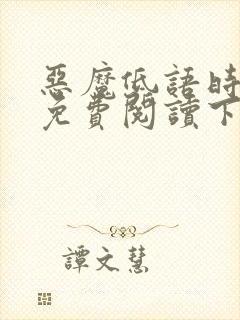 惡魔低語時
免費閱讀下
譚文慧